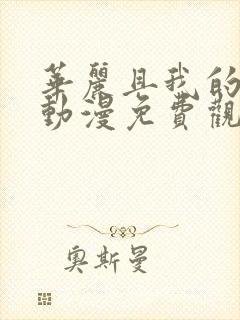 華麗具我的
動漫免費觀
奧斯曼